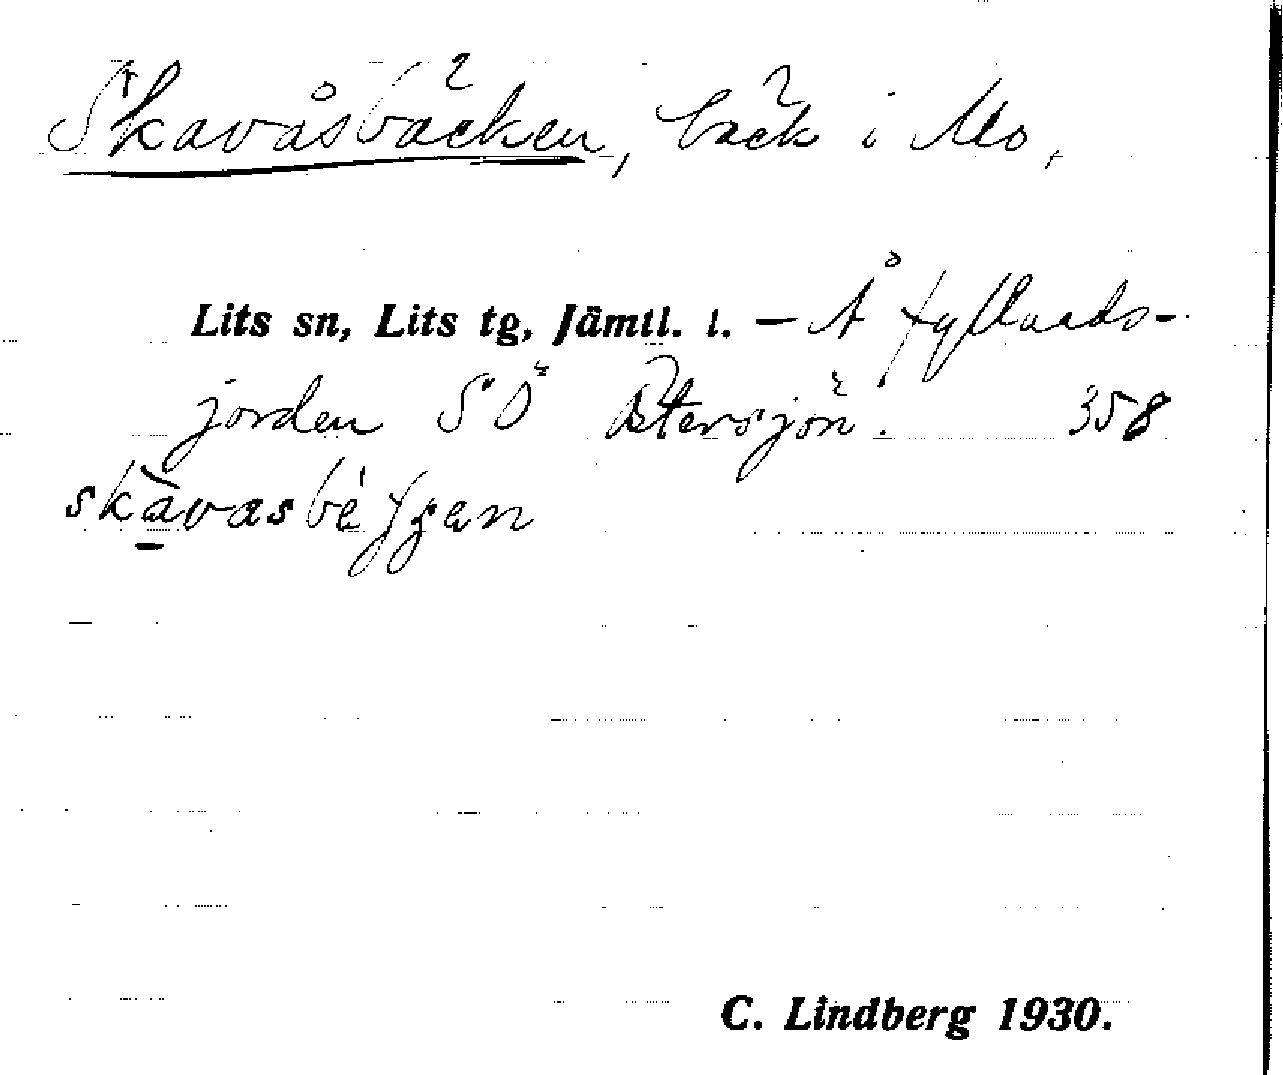 Skavåsbäcken, bäck i Mo,
Lits sn, Lits tg, Jämtl. l. – Å
jorden SÖ Östersjön. 358
C. Lindberg 1930.